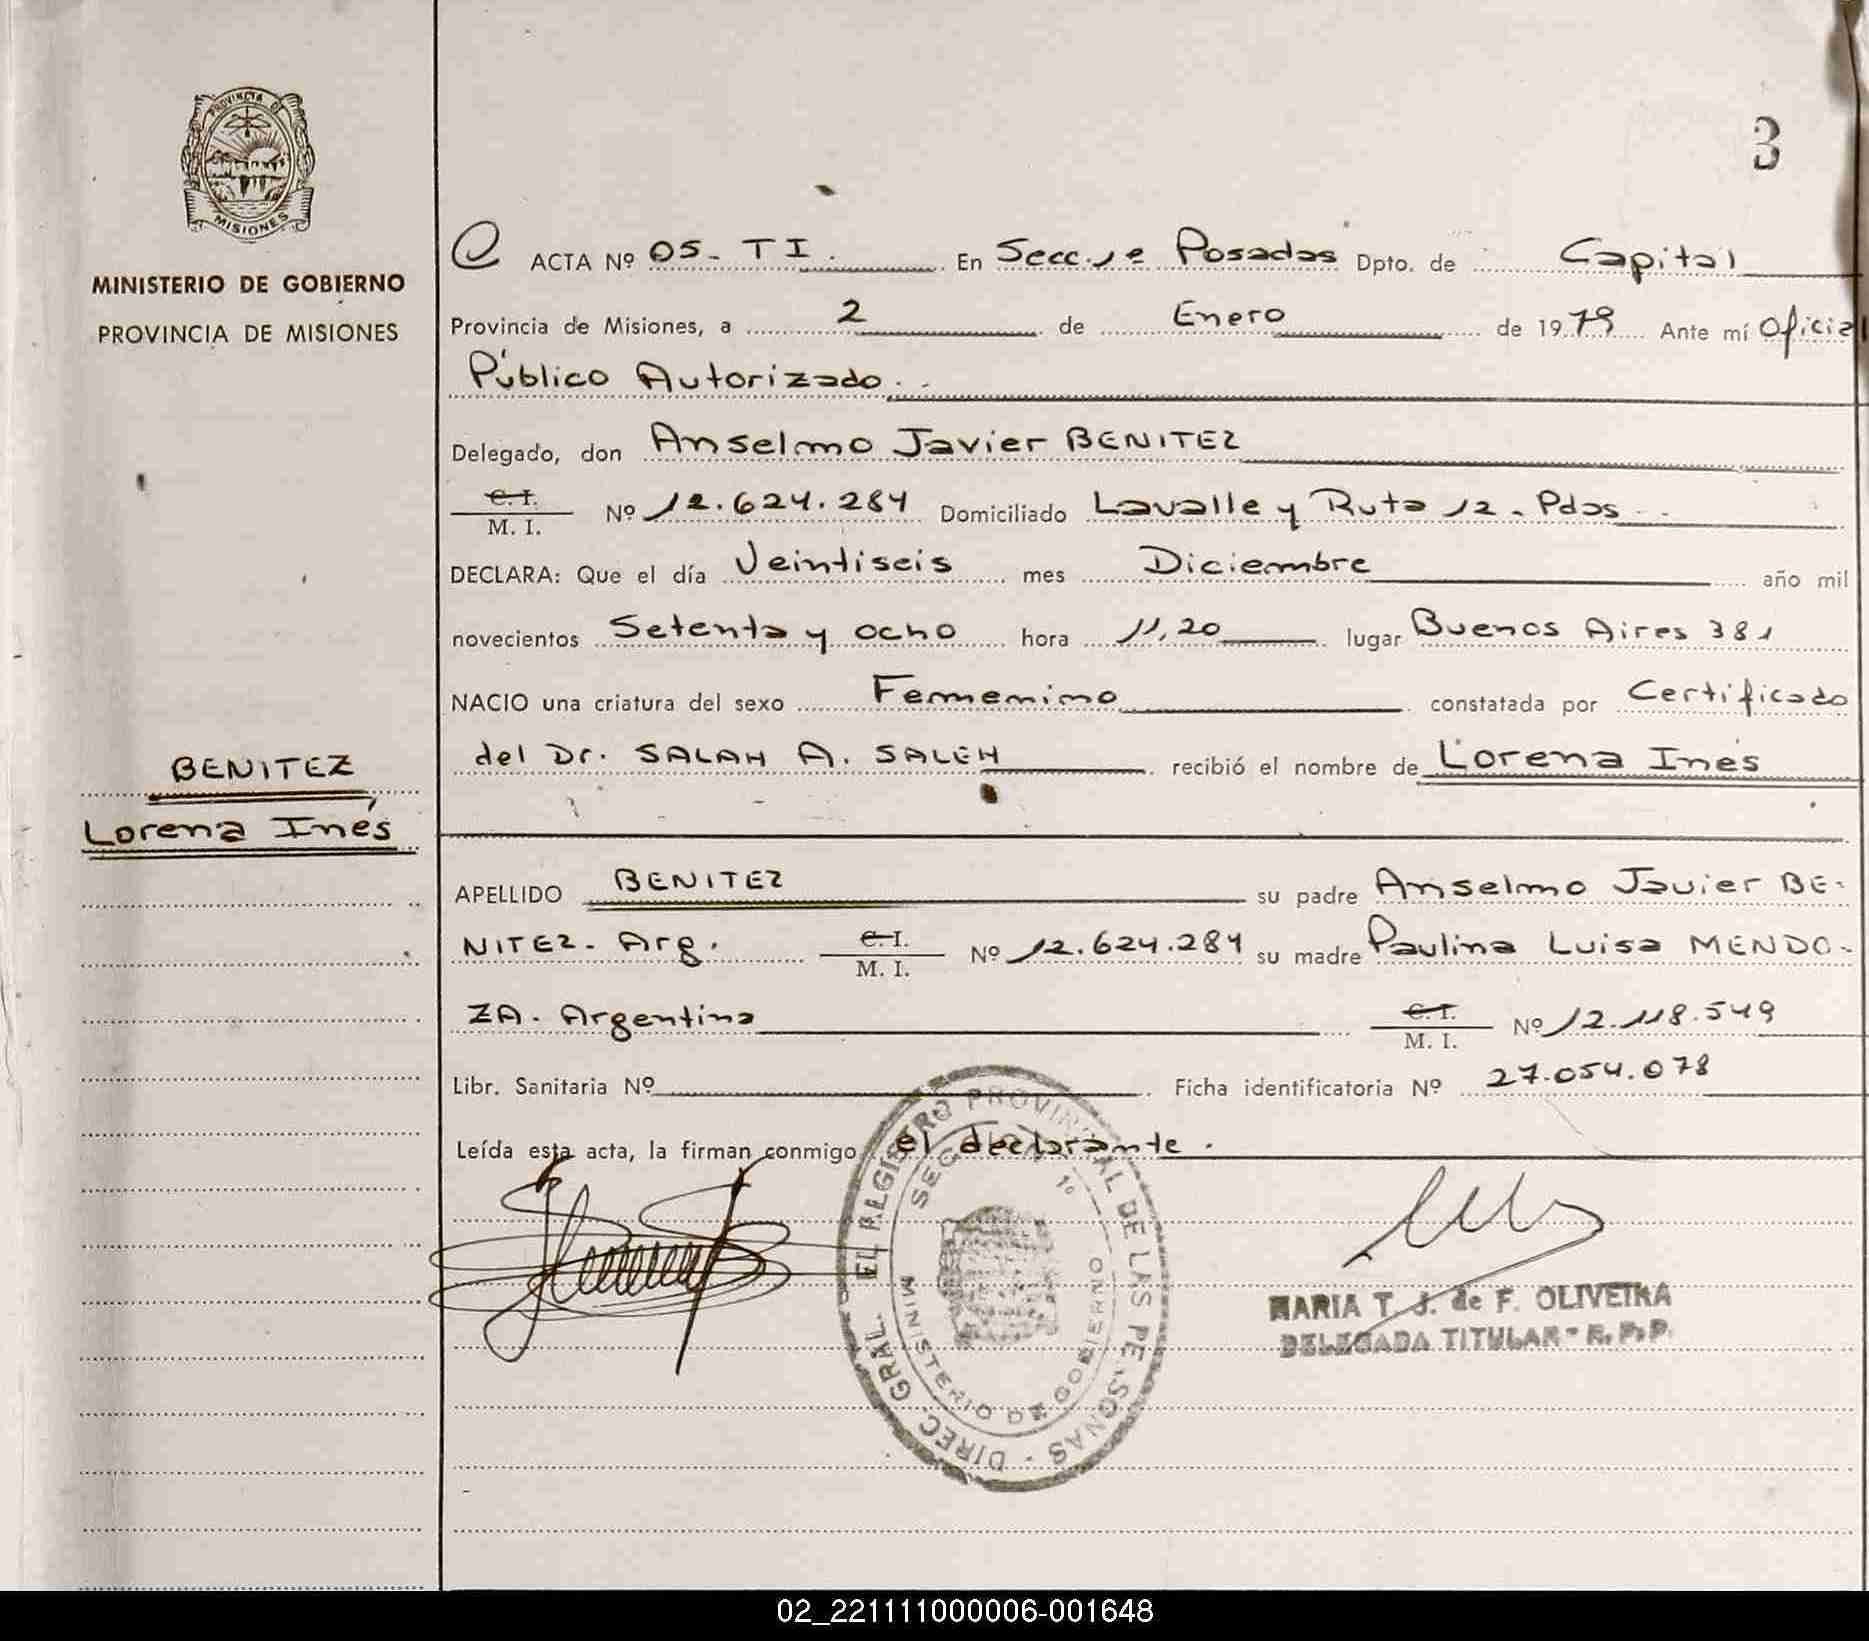 PROVINCIA DE
MISIONES
MINISTERIO DE GOBIERNO
PROVINCIA DE MISIONES
BENITEZ
Lorena Inés
3
ACTA Nº 05- TI. En Secc. 1ª Posadas Dpto. de Capital
Provincia de Misiones, a 2 de Enero de 1979 Ante mí Oficial
Público Autorizado.
Delegado, don Anselmo Javier BENITEZ
C. I.
M. I. Nº 12.624.284 Domiciliado Lavalle y Ruta 12 - Pdas
DECLARA: Que el día Veintiseis mes Diciembre año mil
novecientos Setenta y ocho hora 11,20 lugar Buenos Aires 381
NACIO una criatura del sexo Femenino constatada por Certificado
del Dr. SALAH A. SALEH recibió el nombre de Lorena Inés
APELLIDO BENITEZ su padre Anselmo Javier BE-
NITEZ- Arg. C. I. M. I. Nº 12.624.284 su madre Paulina Luisa MENDO-
ZA. Argentina C. I. M. I. Nº 12.118.549
Libr. Sanitaria Nº Ficha identificatoria Nº 27.054.078
Leída esta acta, la firman conmigo el declarante.
DIREC. GRAL. EL REGISTRO PROVINCIAL DE LAS PERSONAS
SECCION 1º
MINISTERIO DE GOBIERNO
MARIA T. J. de F. OLIVEIRA
DELEGADA TITULAR - R. P. P.
02_221111000006-001648